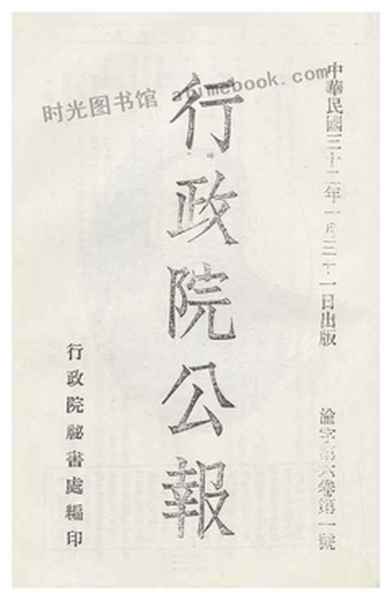 中華民國三十二年一月三十一日出版　渝字第六卷第一號
行政院公報
行政院祕書處編印
时光图书馆 atimebook.com